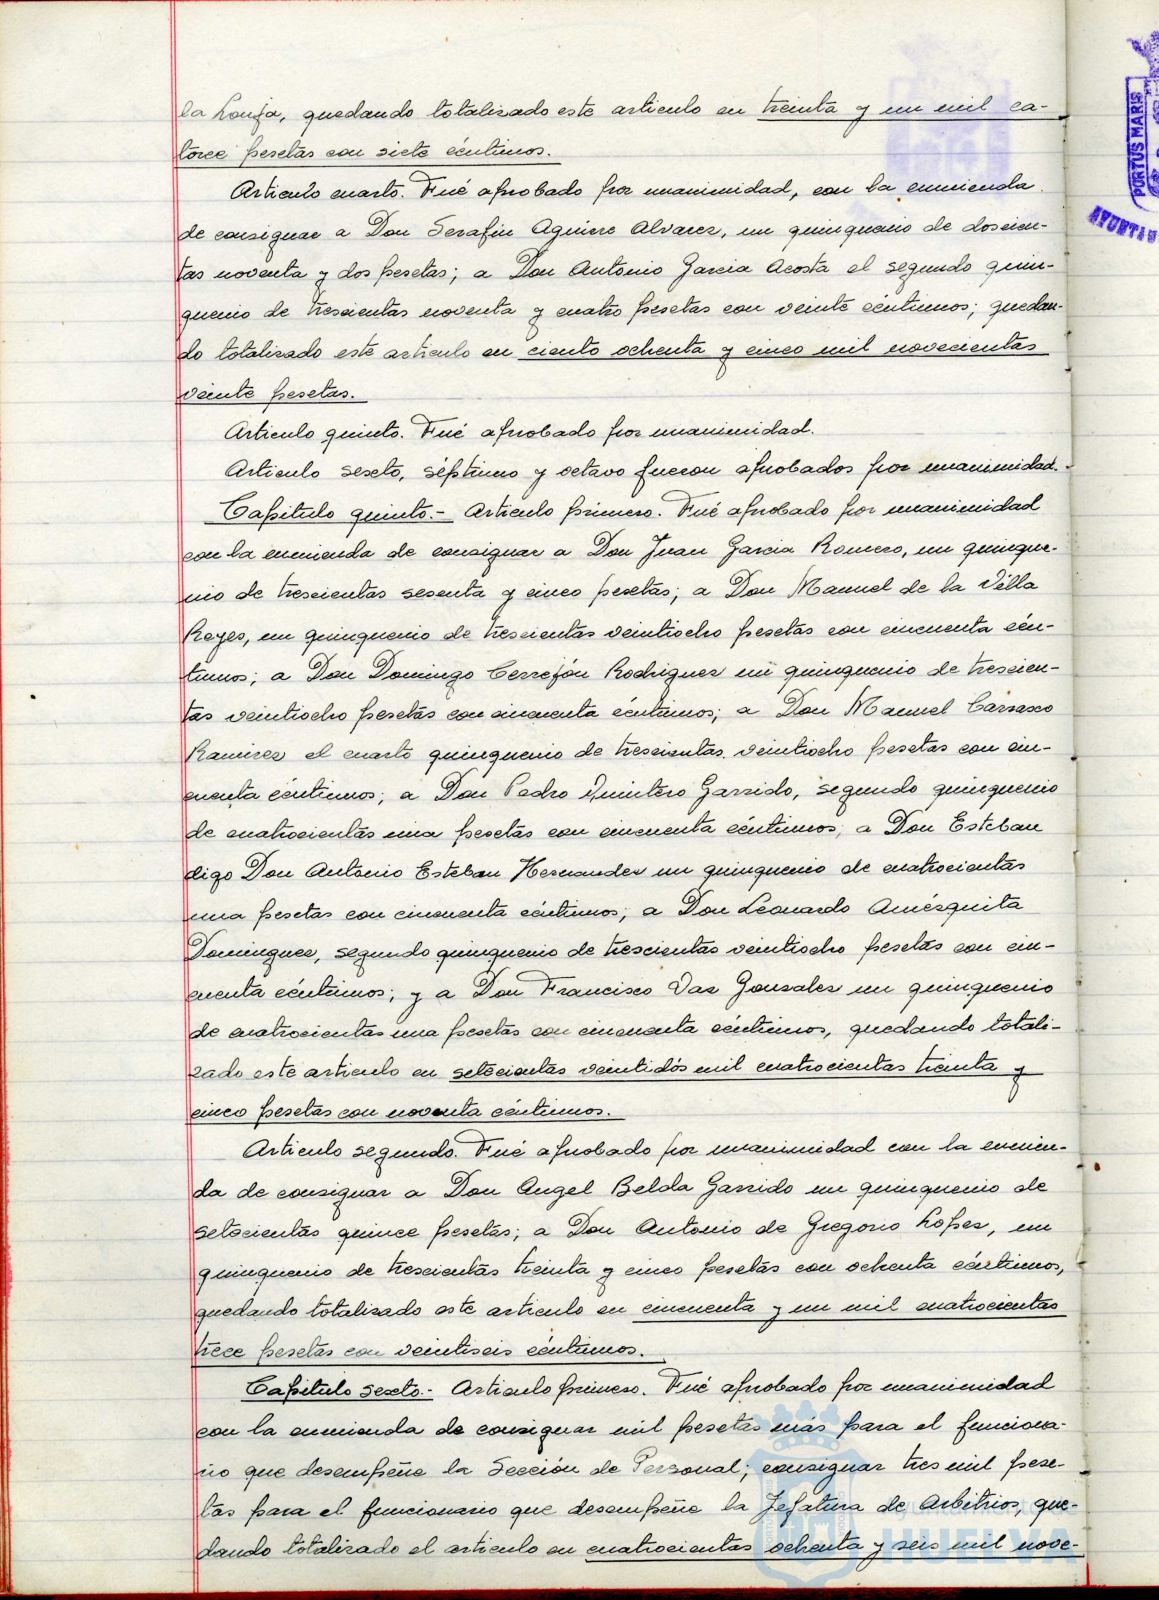 la Lonja, quedando totalizado este articulo en treinta y un mil ca-
torce pesetas con siete céntimos.
Articulo cuarto. Fué aprobado por unanimidad, con la enmienda
de consignar a Don Serafin Aguirre Alvarez, un quinquenio de doscien-
tas noventa y dos pesetas; a Don Antonio Garcia Acosta el segundo quin-
quenio de trescientas noventa y cuatro pesetas con veinte céntimos; quedan-
do totalizado este articulo en ciento ochenta y cinco mil novecientas
veinte pesetas.
Articulo quinto. Fué aprobado por unanimidad.
Articulo sexto, séptimo y octavo fueron aprobados por unanimidad.
Capitulo quinto.- Articulo primero. Fué aprobado por unanimidad
con la enmienda de consignar a Don Juan Garcia Romero, un quinque-
nio de trescientas sesenta y cinco pesetas; a Don Manuel de la Villa
Reyes, un quinquenio de trescientas veintiocho pesetas con cincuenta cén-
timos; a Don Domingo Cerrejón Rodriguez un quinquenio de trescien-
tas veintiocho pesetas con cincuenta céntimos; a Don Manuel Carrasco
Ramirez el cuarto quinquenio de trescientas veintiocho pesetas con cin-
cuenta céntimos; a Don Pedro Quintero Garrido, segundo quinquenio
de cuatrocientas una pesetas con cincuenta céntimos; a Don Esteban
digo Don Antonio Esteban Hernandez un quinquenio de cuatrocientas
una pesetas con cincuenta céntimos; a Don Leonardo Amézquita
Dominguez, segundo quinquenio de trescientas veintiocho pesetas con cin-
cuenta céntimos; y a Don Francisco Vaz Gonzalez un quinquenio
de cuatrocientas una pesetas con cincuenta céntimos, quedando totali-
zado este articulo en setecientas veintidós mil cuatrocientas treinta y
cinco pesetas con noventa céntimos.
Articulo segundo. Fué aprobado por unanimidad con la enmien-
da de consignar a Don Angel Belda Garrido un quinquenio de
setecientas quince pesetas; a Don Antonio de Gregorio Lopez, un
quinquenio de trescientas treinta y cinco pesetas con ochenta céntimos,
quedando totalizado este articulo en cincuenta y un mil cuatrocientas
trece pesetas con veintiseis céntimos.
Capitulo sexto.- Articulo primero. Fué aprobado por unanimidad
con la enmienda de consignar mil pesetas más para el funciona-
rio que desempeñe la Sección de Personal; consignar tres mil pese-
tas para el funcionario que desempeñe la Jefatura de Arbitrios, que-
dando totalizado el articulo en cuatrocientas ochenta y seis mil nove-
PORTUS MARIS
HUELVA